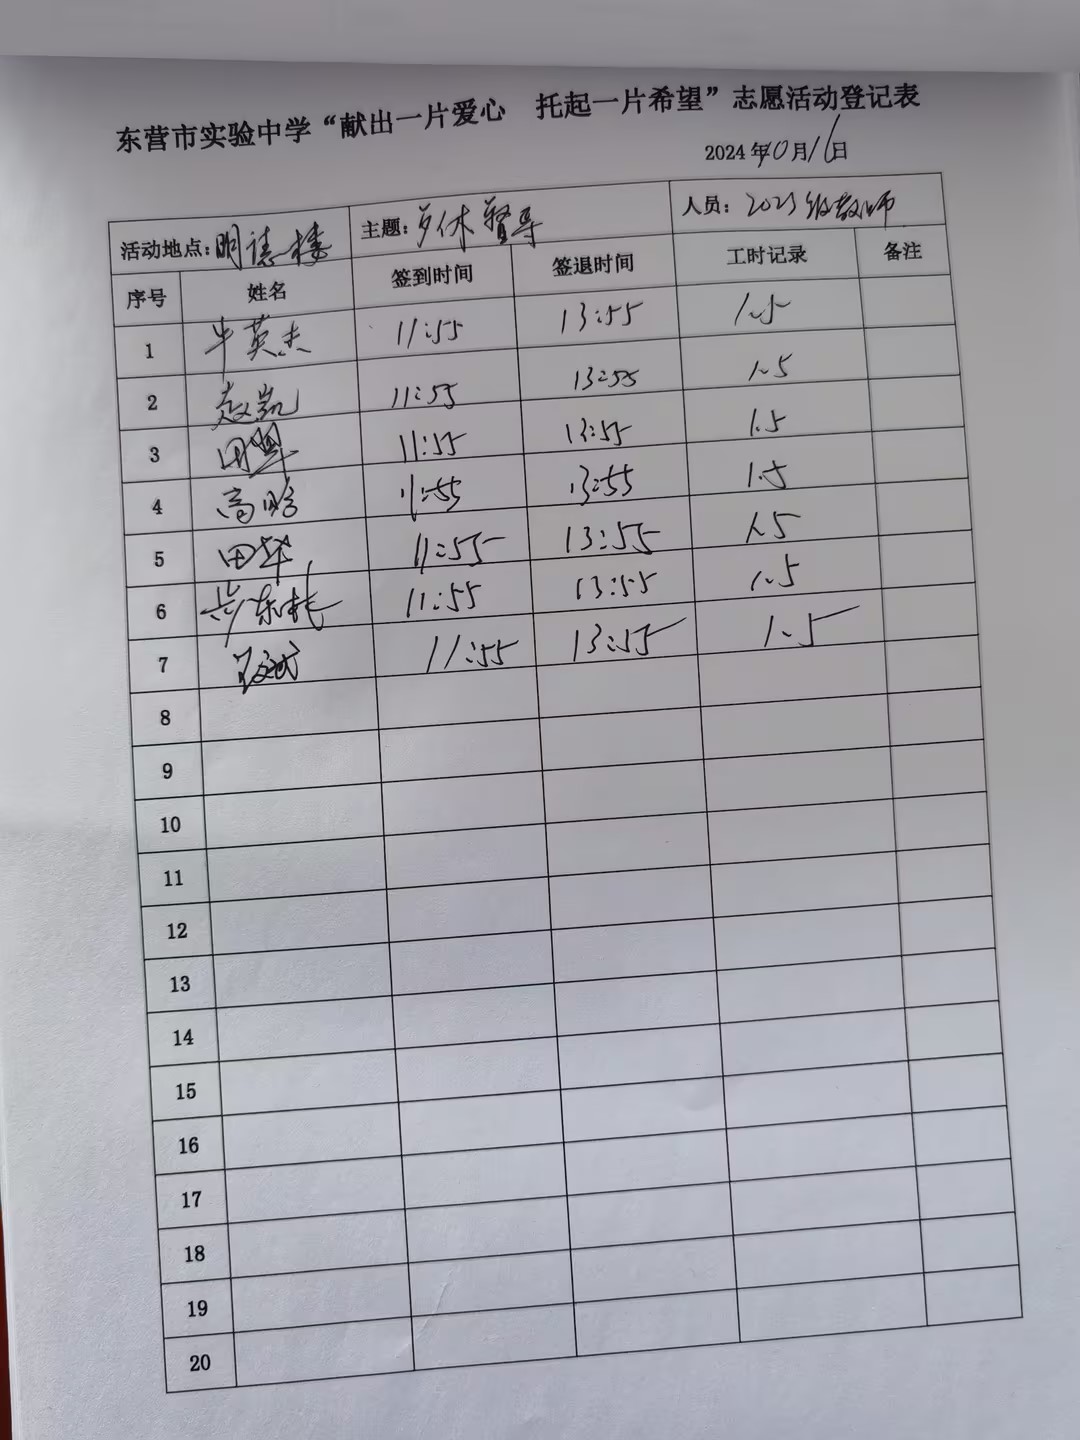 东营市实验中学“献出一片爱心 托起一片希望”志愿活动登记表
2024年10月16日
活动地点:明志楼 主题:午休督导 人员:2023级教师
序号 姓名 签到时间 签退时间 工时记录 备注
1 牛英杰 11:55 13:55 1.5
2 赵凯 11:55 13:55 1.5
3 11:55 13:55 1.5
4 高晗 11:55 13:55 1.5
5 田华 11:55 13:55 1.5
6 11:55 13:55 1.5
7 11:55 13:55 1.5
8
9
10
11
12
13
14
15
16
17
18
19
20